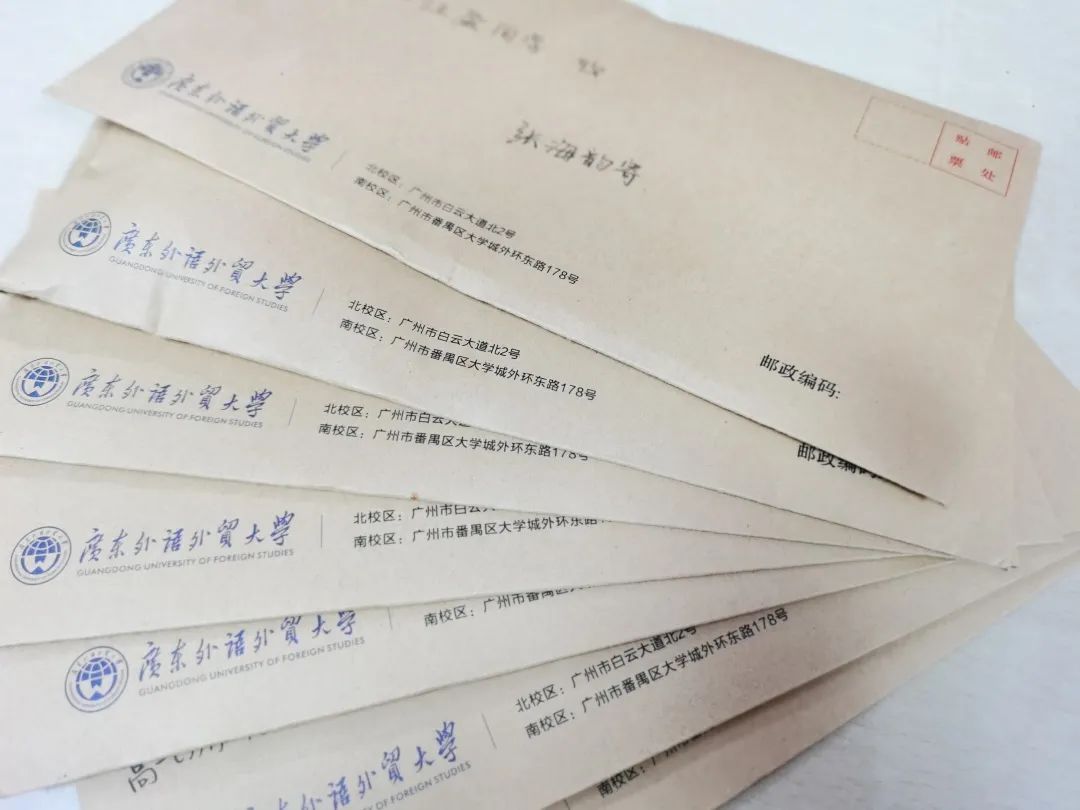 收
张海韵寄
贴邮
票处
廣东外语外貿大學
北校区：广州市白云大道北2号
南校区：广州市番禺区大学城外环东路178号
邮政编码:
廣东外语外貿大學
GUANGDONG UNIVERSITY OF FOREIGN STUDIES
北校区：广州市白云大道北2号
南校区：广州市番禺区大学城外环东路178号
邮政编码
廣东外语外貿大學
GUANGDONG UNIVERSITY OF FOREIGN STUDIES
北校区：广州市白云
南校区：广州市番禺区大学城外环东路178号
廣东外语外貿大學
GUANGDONG UNIVERSITY OF FOREIGN STUDIES
北校区：广州市白云
南校区：广州市番禺区大学城外环东路
廣东外语外貿大學
GUANGDONG UNIVERSITY OF FOREIGN STUDIES
南校区：广州市番禺区大学
北校区：广州市白云大道北2号
南校区：广州市番禺区大学城外环东路178号
高
廣东外语外貿大學
GUANGDONG UNIVERSITY OF FOREIGN STUDIES
南校区：广州